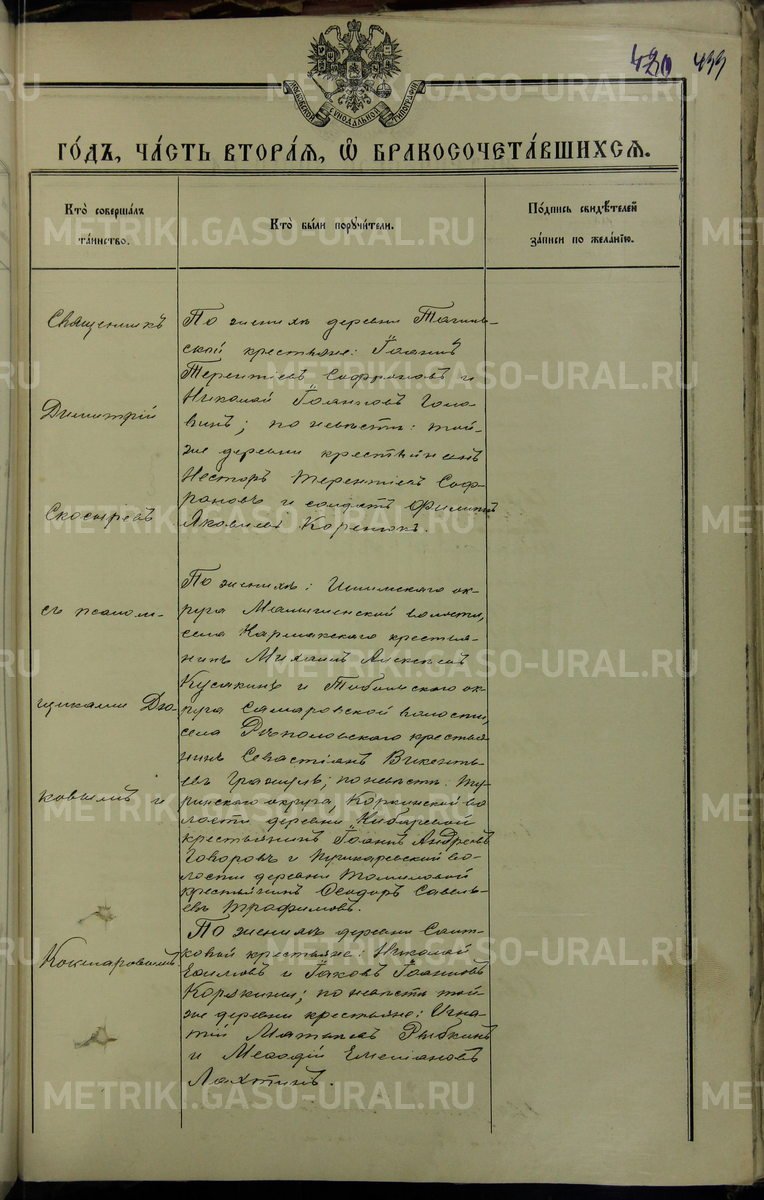 420 499
МОСКОВСКОЙ СѴНОДАЛЬНОЙ ТИПОГРАФІИ
ГО́ДЪ, ЧА́СТЬ ВТОРА́Я, Ѽ БРАКОСОЧЕТА́ВШИХСЯ.
Кто̀ соверша́лъ
та́инство.
Кто̀ бы́ли поручи́тели.
По́дпись свидѣ́телей
за́писи по жела́нїю.
Священникъ
Димитрій
Скосыревъ
съ псалом-
щиками Дья-
ковымъ и
Кокшаровымъ
По женихѣ деревни Тагиль-
ской крестьяне: Іоаннъ
Терентіевъ Софроновъ и
Николай Іоанновъ Голо-
винъ; по невѣстѣ: той-
же деревни крестьянинъ
Несторъ Терентіевъ Соф-
роновъ и солдатъ Филиппъ
Яковлевъ
По женихѣ: Ишимскаго ок-
руга волости,
села крестья-
нинъ Михаилъ Алексѣевъ
и Тобольскаго ок-
руга Самаровской волости,
села Рѣполовскаго крестья-
нинъ Севастіанъ Викенть-
евъ по невѣстѣ: Ту-
ринскаго округа, Коркинской во-
лости деревни
крестьянинъ Іоаннъ Андреевъ
Говоровъ и Пушкаревской во-
лости деревни Томиловой
крестьянинъ Ѳеодоръ Савель-
евъ Трофимовъ.
По женихѣ деревни
крестьяне: Николай
Ефимовъ и Іаковъ Іоанновъ
Корякины; по невѣстѣ той
же деревни крестьяне: Игна-
тій Матвѣевъ Рыбкинъ
и Меѳодій Емеліановъ
Лахтинъ.
METRIKI.GASO-URAL.RU